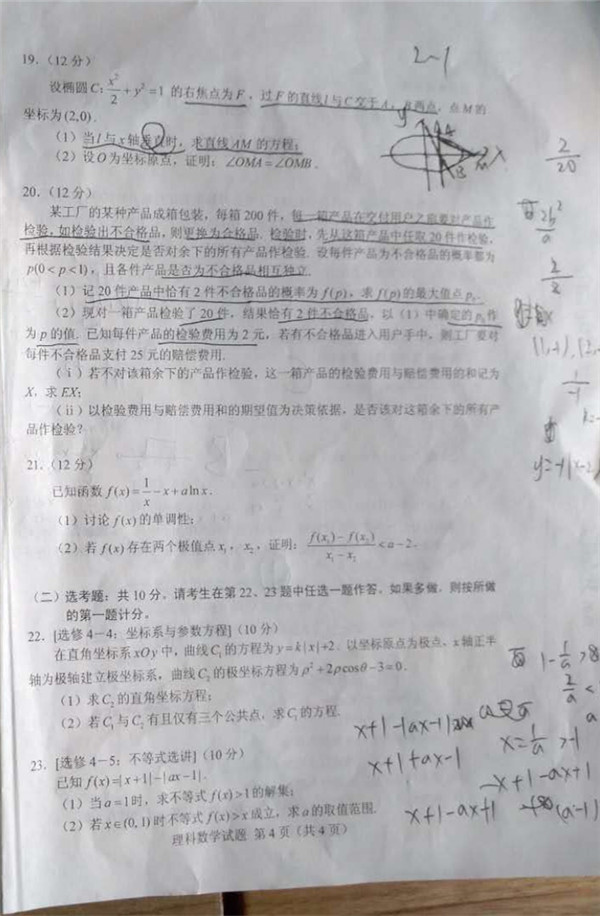 2-1
19.(12分)
设椭圆C: x²/2 + y² = 1 的右焦点为F,过F的直线l与C交于A,B两点,点M的
坐标为(2,0).
(1)当l与x轴垂直时,求直线AM的方程;
(2)设O为坐标原点,证明:∠OMA=∠OMB.
20.(12分)
某工厂的某种产品成箱包装,每箱200件,每一箱产品在交付用户之前要对产品作
检验,如检验出不合格品,则更换为合格品.检验时,先从这箱产品中任取20件作检验,
再根据检验结果决定是否对余下的所有产品作检验.设每件产品为不合格品的概率都为
p(0<p<1),且各件产品是否为不合格品相互独立.
(1)记20件产品中恰有2件不合格品的概率为f(p),求f(p)的最大值点p₀.
(2)现对一箱产品检验了20件,结果恰有2件不合格品,以(1)中确定的p₀作
为p的值.已知每件产品的检验费用为2元,若有不合格品进入用户手中,则工厂要对
每件不合格品支付25元的赔偿费用.
(ⅰ)若不对该箱余下的产品作检验,这一箱产品的检验费用与赔偿费用的和记为
X,求EX;
(ⅱ)以检验费用与赔偿费用和的期望值为决策依据,是否该对这箱余下的所有产
品作检验?
21.(12分)
已知函数 f(x)= 1/x - x + a ln x.
(1)讨论f(x)的单调性;
(2)若f(x)存在两个极值点x₁,x₂,证明:(f(x₁)-f(x₂))/(x₁-x₂) < a-2.
(二)选考题:共10分。请考生在第22、23题中任选一题作答,如果多做,则按所做
的第一题计分。
22. [选修4-4:坐标系与参数方程](10分)
在直角坐标系xOy中,曲线C₁的方程为y=k|x|+2.以坐标原点为极点,x轴正半
轴为极轴建立极坐标系,曲线C₂的极坐标方程为ρ²+2ρcosθ-3=0.
(1)求C₂的直角坐标方程;
(2)若C₁与C₂有且仅有三个公共点,求C₁的方程.
23. [选修4-5:不等式选讲](10分)
已知f(x)=|x+1|-|ax-1|.
(1)当a=1时,求不等式f(x)>1的解集;
(2)若x∈(0,1)时不等式f(x)>x成立,求a的取值范围.
理科数学试题 第4页(共4页)
2/20
2b²/a
2/2
1/-1
x+1-|ax-1|
x+1+ax-1
x=1/a>-1
-x+1-ax+1
x+1-ax+1
(a-1)